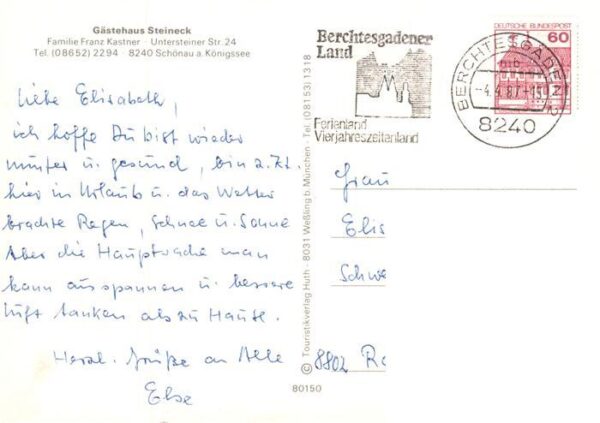 Gästehaus Steineck
Familie Franz Kastner · Untersteiner Str. 24
Tel. (08652) 2294 · 8240 Schönau a. Königssee
Liebe Elisabeth,
ich hoffe Du bist wieder
munter u. gesund, bin z. Zt.
hier in Urlaub u. das Wetter
brachte Regen, Schnee u. Sonne
Aber die Hauptsache man
kann ausspannen u. bessere
Luft tanken als zu Hause.
Herzl. Grüße an Alle
Else
© Touristikverlag Huth · 8031 Weßling b. München · Tel. (08153) 1318
80150
Berchtesgadener
Land
Ferienland
Vierjahreszeitenland
BERCHTESGADEN 2
-4.4.87-15
8240
DEUTSCHE BUNDESPOST
60
Frau
Elis
Schwe
8802 Ro